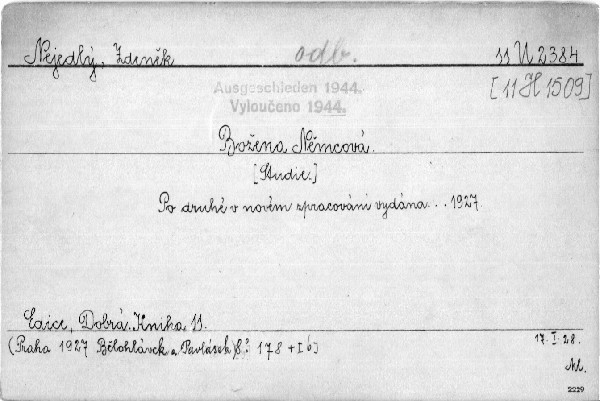 Nejedlý, Zdeněk odb. 11 U 2384
[11 H 1509]
Ausgeschieden 1944.
Vyloučeno 1944.
Božena Němcová.
[Studie.]
Po druhé v novém zpracování vydána... 1927.
Edice, Dobrá Kniha 11.
(Praha 1927 Bělohlávek a Pavlásek) 8° 178 + I b)
17. I. 28.
2229